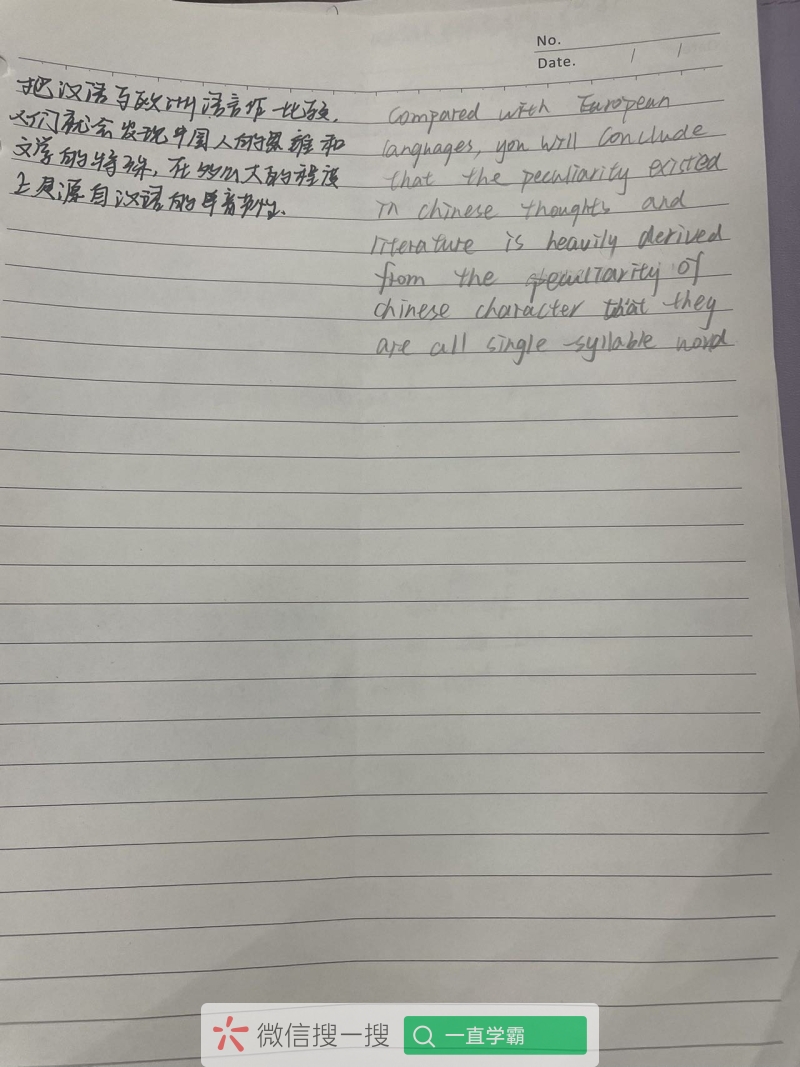 No.
Date. / /
把汉语与欧洲语言作一比较,
人们就会发现中国人的思维和
文学的特殊, 在如此大的程度
上是源自汉语的单音节性.
Compared with European
languages, you will conclude
that the peculiarity existed
in chinese thoughts and
literature is heavily derived
from the peculiarity of
chinese character that they
are all single-syllable word
微信搜一搜 一直学霸